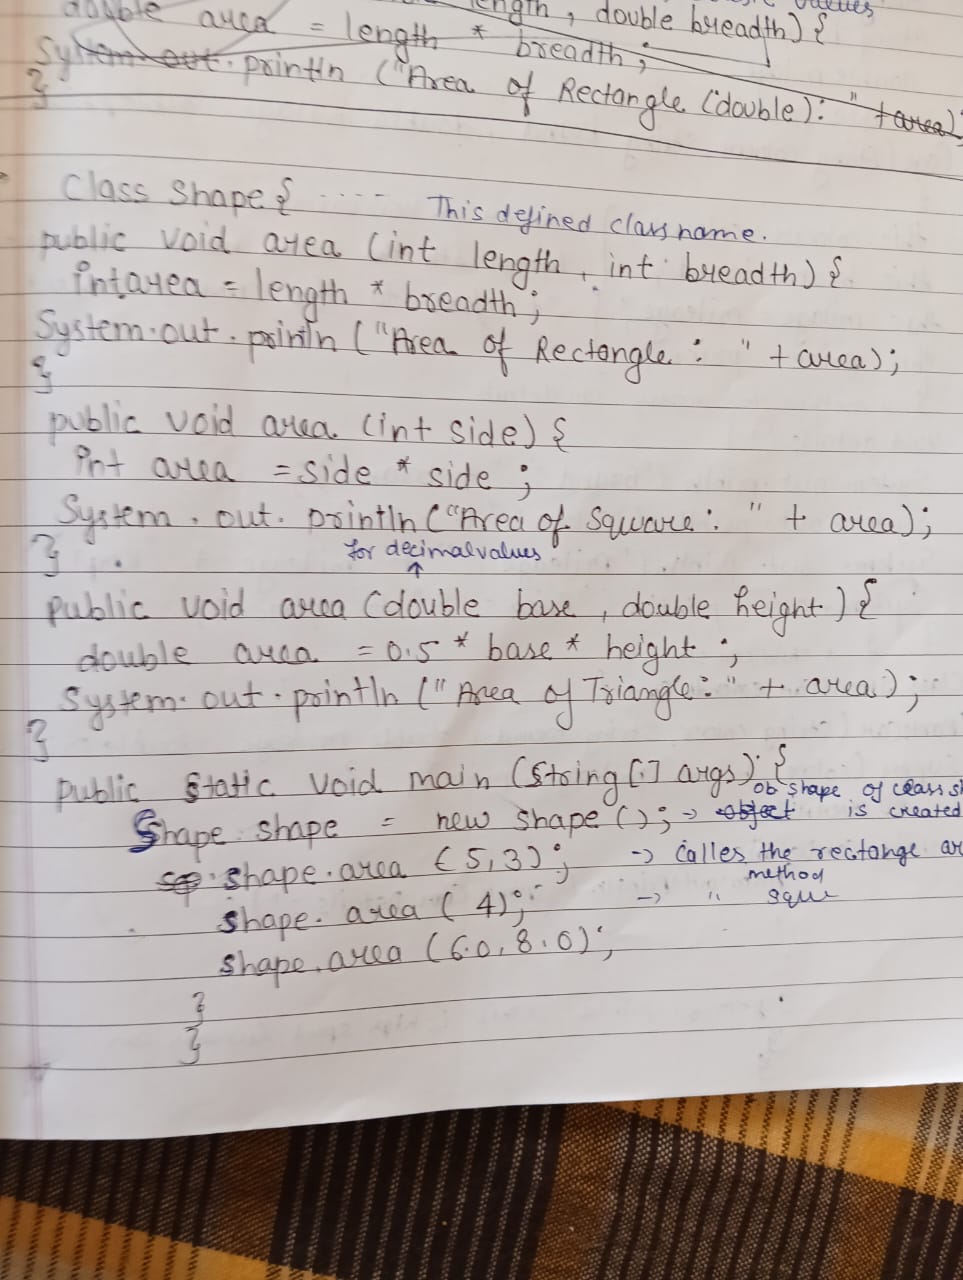 length, double breadth) {
double area = length * breadth;
System.out.println ("Area of Rectangle (double): " + area)
}
Class Shape { .... This defined class name.
public void area (int length, int breadth) {
int area = length * breadth;
System.out.println ("Area of Rectangle : " + area);
}
public void area (int side) {
int area = side * side ;
System.out.println ("Area of Square: " + area);
} for decimal values
↑
public void area (double base, double height) {
double area = 0.5 * base * height ;
System.out.println ("Area of Triangle: " + area);
}
public static void main (String [] args) {
ob shape of class sh
Shape shape = new shape (); → object is created
shape.area (5,3); → calles the rectange ar
method
shape.area (4); → " squ
shape.area (6.0, 8.0);
}
}